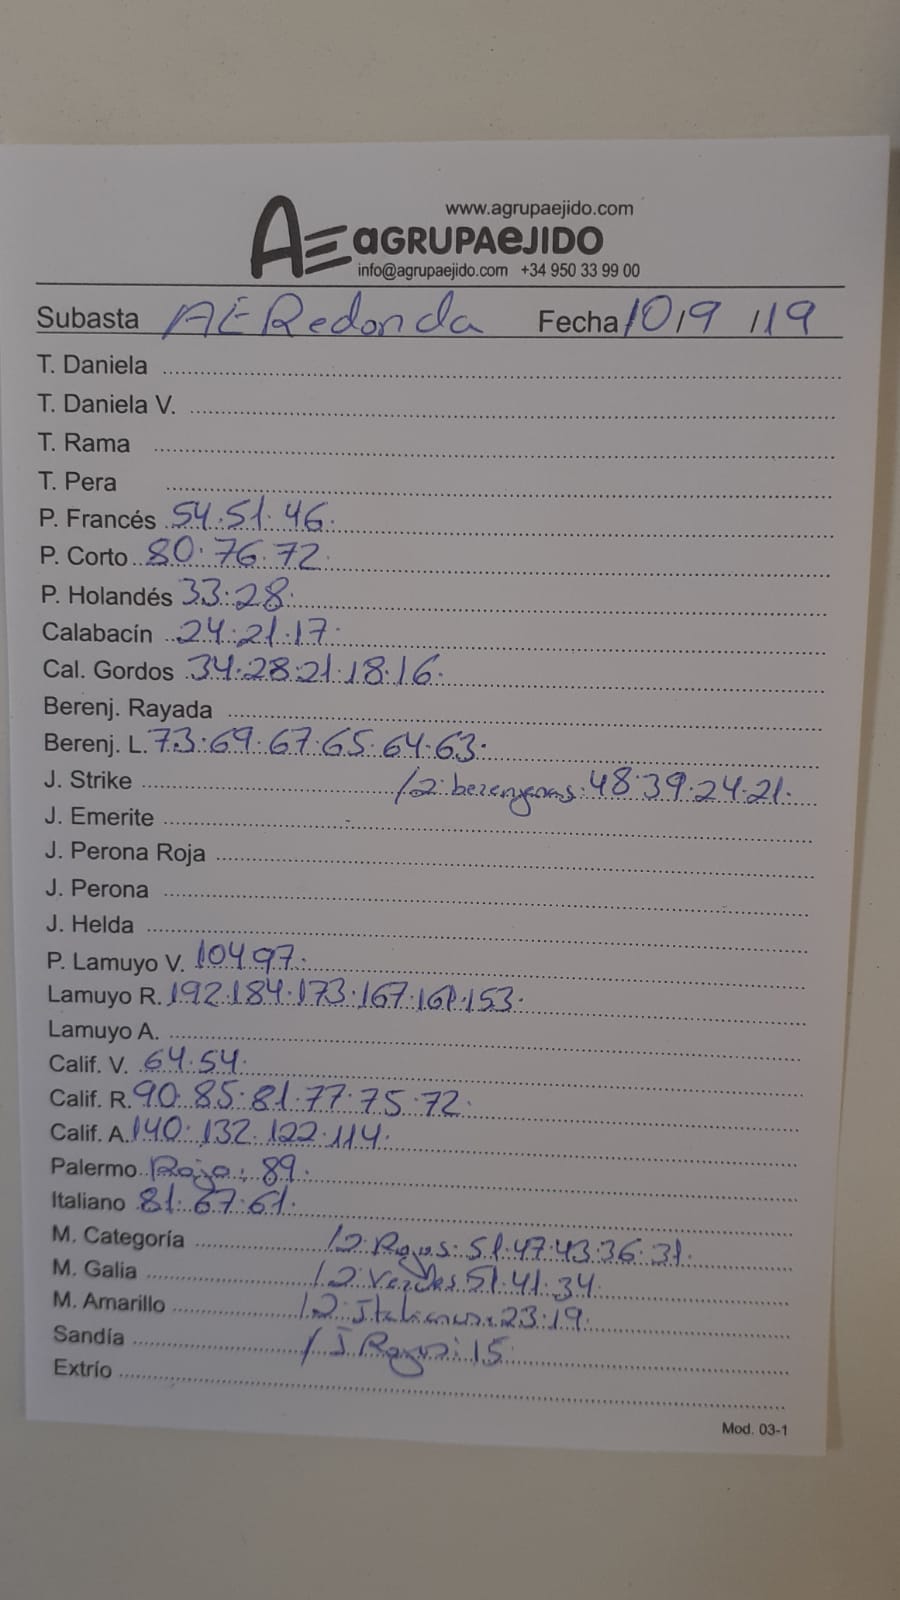 www.agrupaejido.com
AE aGRUPAeJIDO
info@agrupaejido.com +34 950 33 99 00
Subasta AE Redonda Fecha 10/9/19
T. Daniela
T. Daniela V.
T. Rama
T. Pera
P. Francés 54.51.46.
P. Corto 80.76.72.
P. Holandés 33.28.
Calabacín 24.21.17.
Cal. Gordos 34.28.21.18.16.
Berenj. Rayada
Berenj. L. 73.69.67.65.64.63.
J. Strike /2 berengenas.48.39.24.21.
J. Emerite
J. Perona Roja
J. Perona
J. Helda
P. Lamuyo V. 104 97.
Lamuyo R. 192.184.173.167.161.153.
Lamuyo A.
Calif. V. 64.54.
Calif. R. 90.85.81.77.75.72.
Calif. A. 140.132.122.114.
Palermo Rojo: 89.
Italiano 81.67.61.
M. Categoría /2 Rojos: 51.47.43.36.31.
M. Galia /2 Verdes 51.41.34.
M. Amarillo /2 Italianos: 23.19.
Sandía / J Rojos: 15.
Extrío
Mod. 03-1